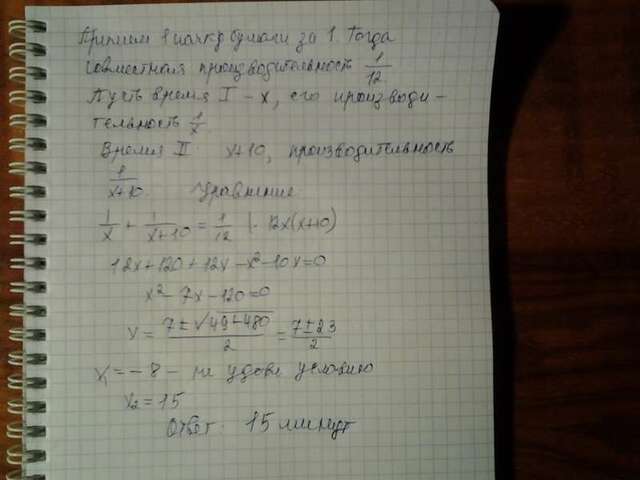 Примем 1 пачку бумаги за 1. Тогда
совместная производительность 1/12
Пусть время I – x, его производи-
тельность 1/x
Время II x+10, производительность
1/(x+10). Уравнение:
1/x + 1/(x+10) = 1/12 |· 12x(x+10)
12x+120+12x–x²–10x=0
x²–7x–120=0
x = (7±√(49+480))/2 = (7±23)/2
x₁=–8 – не удовл условию
x₂=15
Ответ: 15 минут